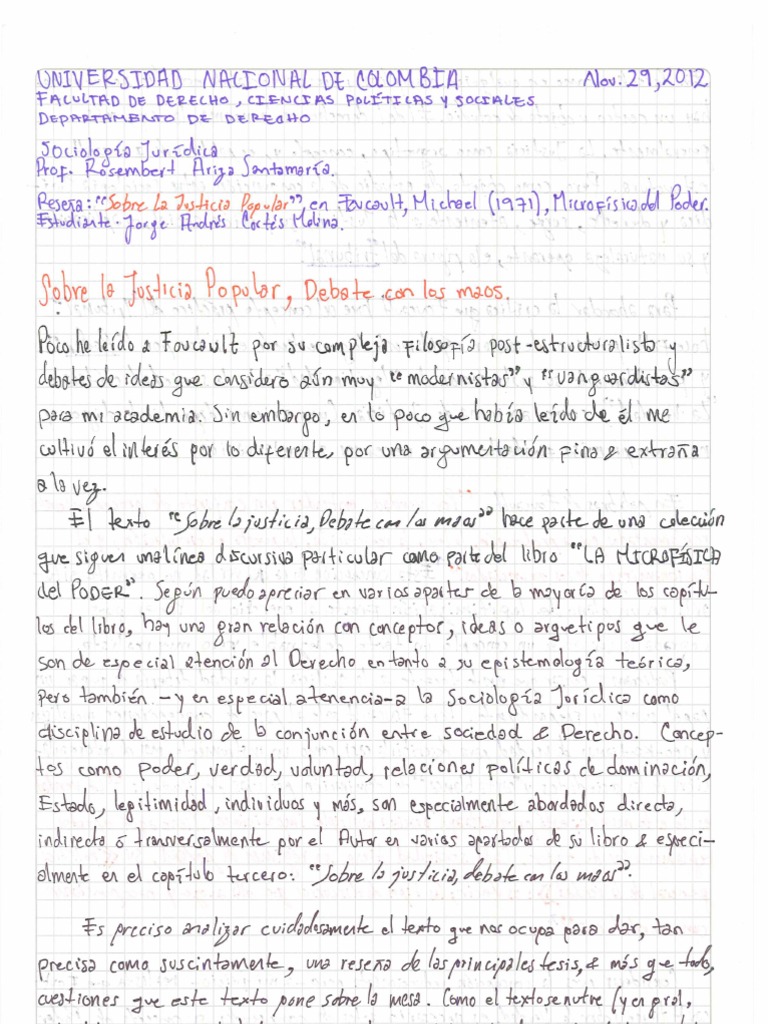 UNIVERSIDAD NACIONAL DE COLOMBIA Nov. 29, 2012
FACULTAD DE DERECHO, CIENCIAS POLÍTICAS Y SOCIALES
DEPARTAMENTO DE DERECHO
Sociología Jurídica
Prof. Rosembert Ariza Santamaría.
Reseña: "Sobre La Justicia Popular", en Foucault, Michael (1971), Microfísica del Poder.
Estudiante. Jorge Andrés Cortés Molina.
Sobre la Justicia Popular, Debate con los maos.
Poco he leído a Foucault por su compleja filosofía post-estructuralista y
debates de ideas que considero aún muy "modernistas" y "vanguardistas"
para mi academia. Sin embargo, en lo poco que había leído de él me
cultivó el interés por lo diferente, por una argumentación fina & extraña
a la vez.
El texto "Sobre la justicia, Debate con los maos" hace parte de una colección
que siguen una línea discursiva particular como parte del libro "LA MICROFÍSICA
del PODER". Según puedo apreciar en varios apartes de la mayoría de los capítu-
los del libro, hay una gran relación con conceptos, ideas o arquetipos que le
son de especial atención al Derecho en tanto a su epistemología teórica,
pero también -y en especial atenencia- a la Sociología Jurídica como
disciplina de estudio de la conjunción entre sociedad & Derecho. Concep-
tos como poder, verdad, voluntad, relaciones políticas de dominación,
Estado, legitimidad, individuos y más, son especialmente abordados directa,
indirecta ó transversalmente por el Autor en varios apartados de su libro & especi-
almente en el capítulo tercero: "Sobre la justicia, debate con los maos".
Es preciso analizar cuidadosamente el texto que nos ocupa para dar, tan
precisa como suscintamente, una reseña de las principales tesis, & más que todo,
cuestiones que este texto pone sobre la mesa. Como el texto se nutre (y en gral,